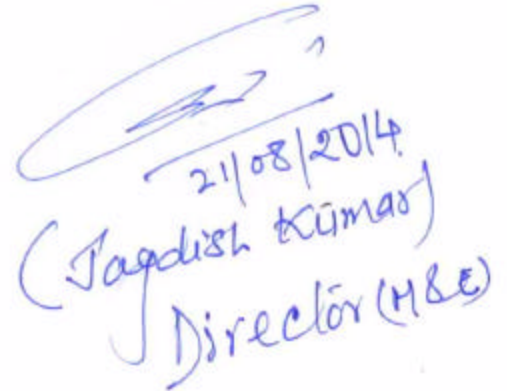 21/08/2014
(Jagdish Kumar)
Director (M&E)